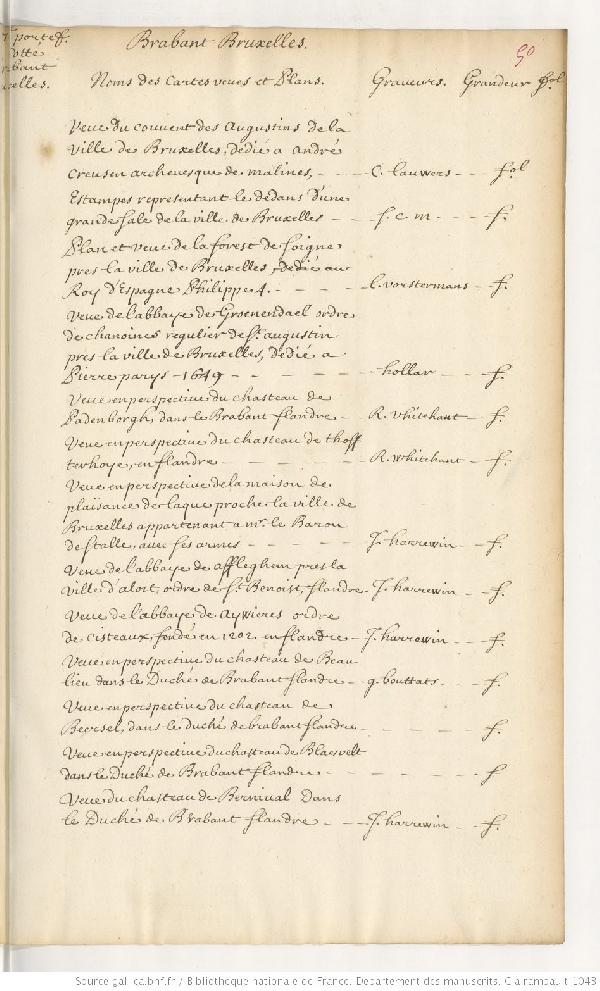 portef.
Brabant Bruxelles.
50
Noms des Cartes veues et Plans. Graveurs. Grandeur fol
Veue du couvent des Augustins de la
ville de Bruxelles, dedié a andré
creusen archevesque de malines, - - C. lauwers - - fol
Estampes representant le dedans d'une
grande sale de la ville de Bruxelles - - f. e. m. - - - f.
Plan et veue de la forest de soigne
pres la ville de Bruxelles, dedié au
Roy d'Espagne Philippe 4. - - - - l. vorstermans - f.
Veue de l'abbaye de Groenendael ordre
de chanoines regulier de St. augustin
pres la ville de Bruxelles, dedié a
Pierre parys - 1649 - - - - - hollar - - f.
Veue en perspective du chasteau de
Padenborgh, dans le Brabant flandre - R. vhitehant - f.
Veue en perspective du chasteau de thoff
terhoye, en flandre - - - - - R. whitehant - f.
Veue en perspective de la maison de
plaisance de laque proche la ville de
Bruxelles appartenant a mr. le Baron
de stalle, avec ses armes - - - - J. harrewin - - f.
Veue de l'abbaye de affleghem pres la
ville d'alost, ordre de St. Benoist, flandre - J. harrewin - - f.
Veue de l'abbaye de aywieres ordre
de Cisteaux, fondé en 1202. en flandre - J. harrewin - - f.
Veue en perspective du chasteau de Beau
lieu dans le Duché de Brabant flandre - g. bouttats - - f.
Veue en perspective du chasteau de
Beersel, dans le duché de brabant flandre - - - - - f.
Veue en perspective du chasteau de Blaesvelt
dans le Duché de Brabant flandre - - - - - f
Veue du chasteau de Bornival Dans
le Duché de Brabant flandre - - - J. harrewin - - f.
Source gallica.bnf.fr / Bibliothèque nationale de France. Département des manuscrits. Clairambault 1048